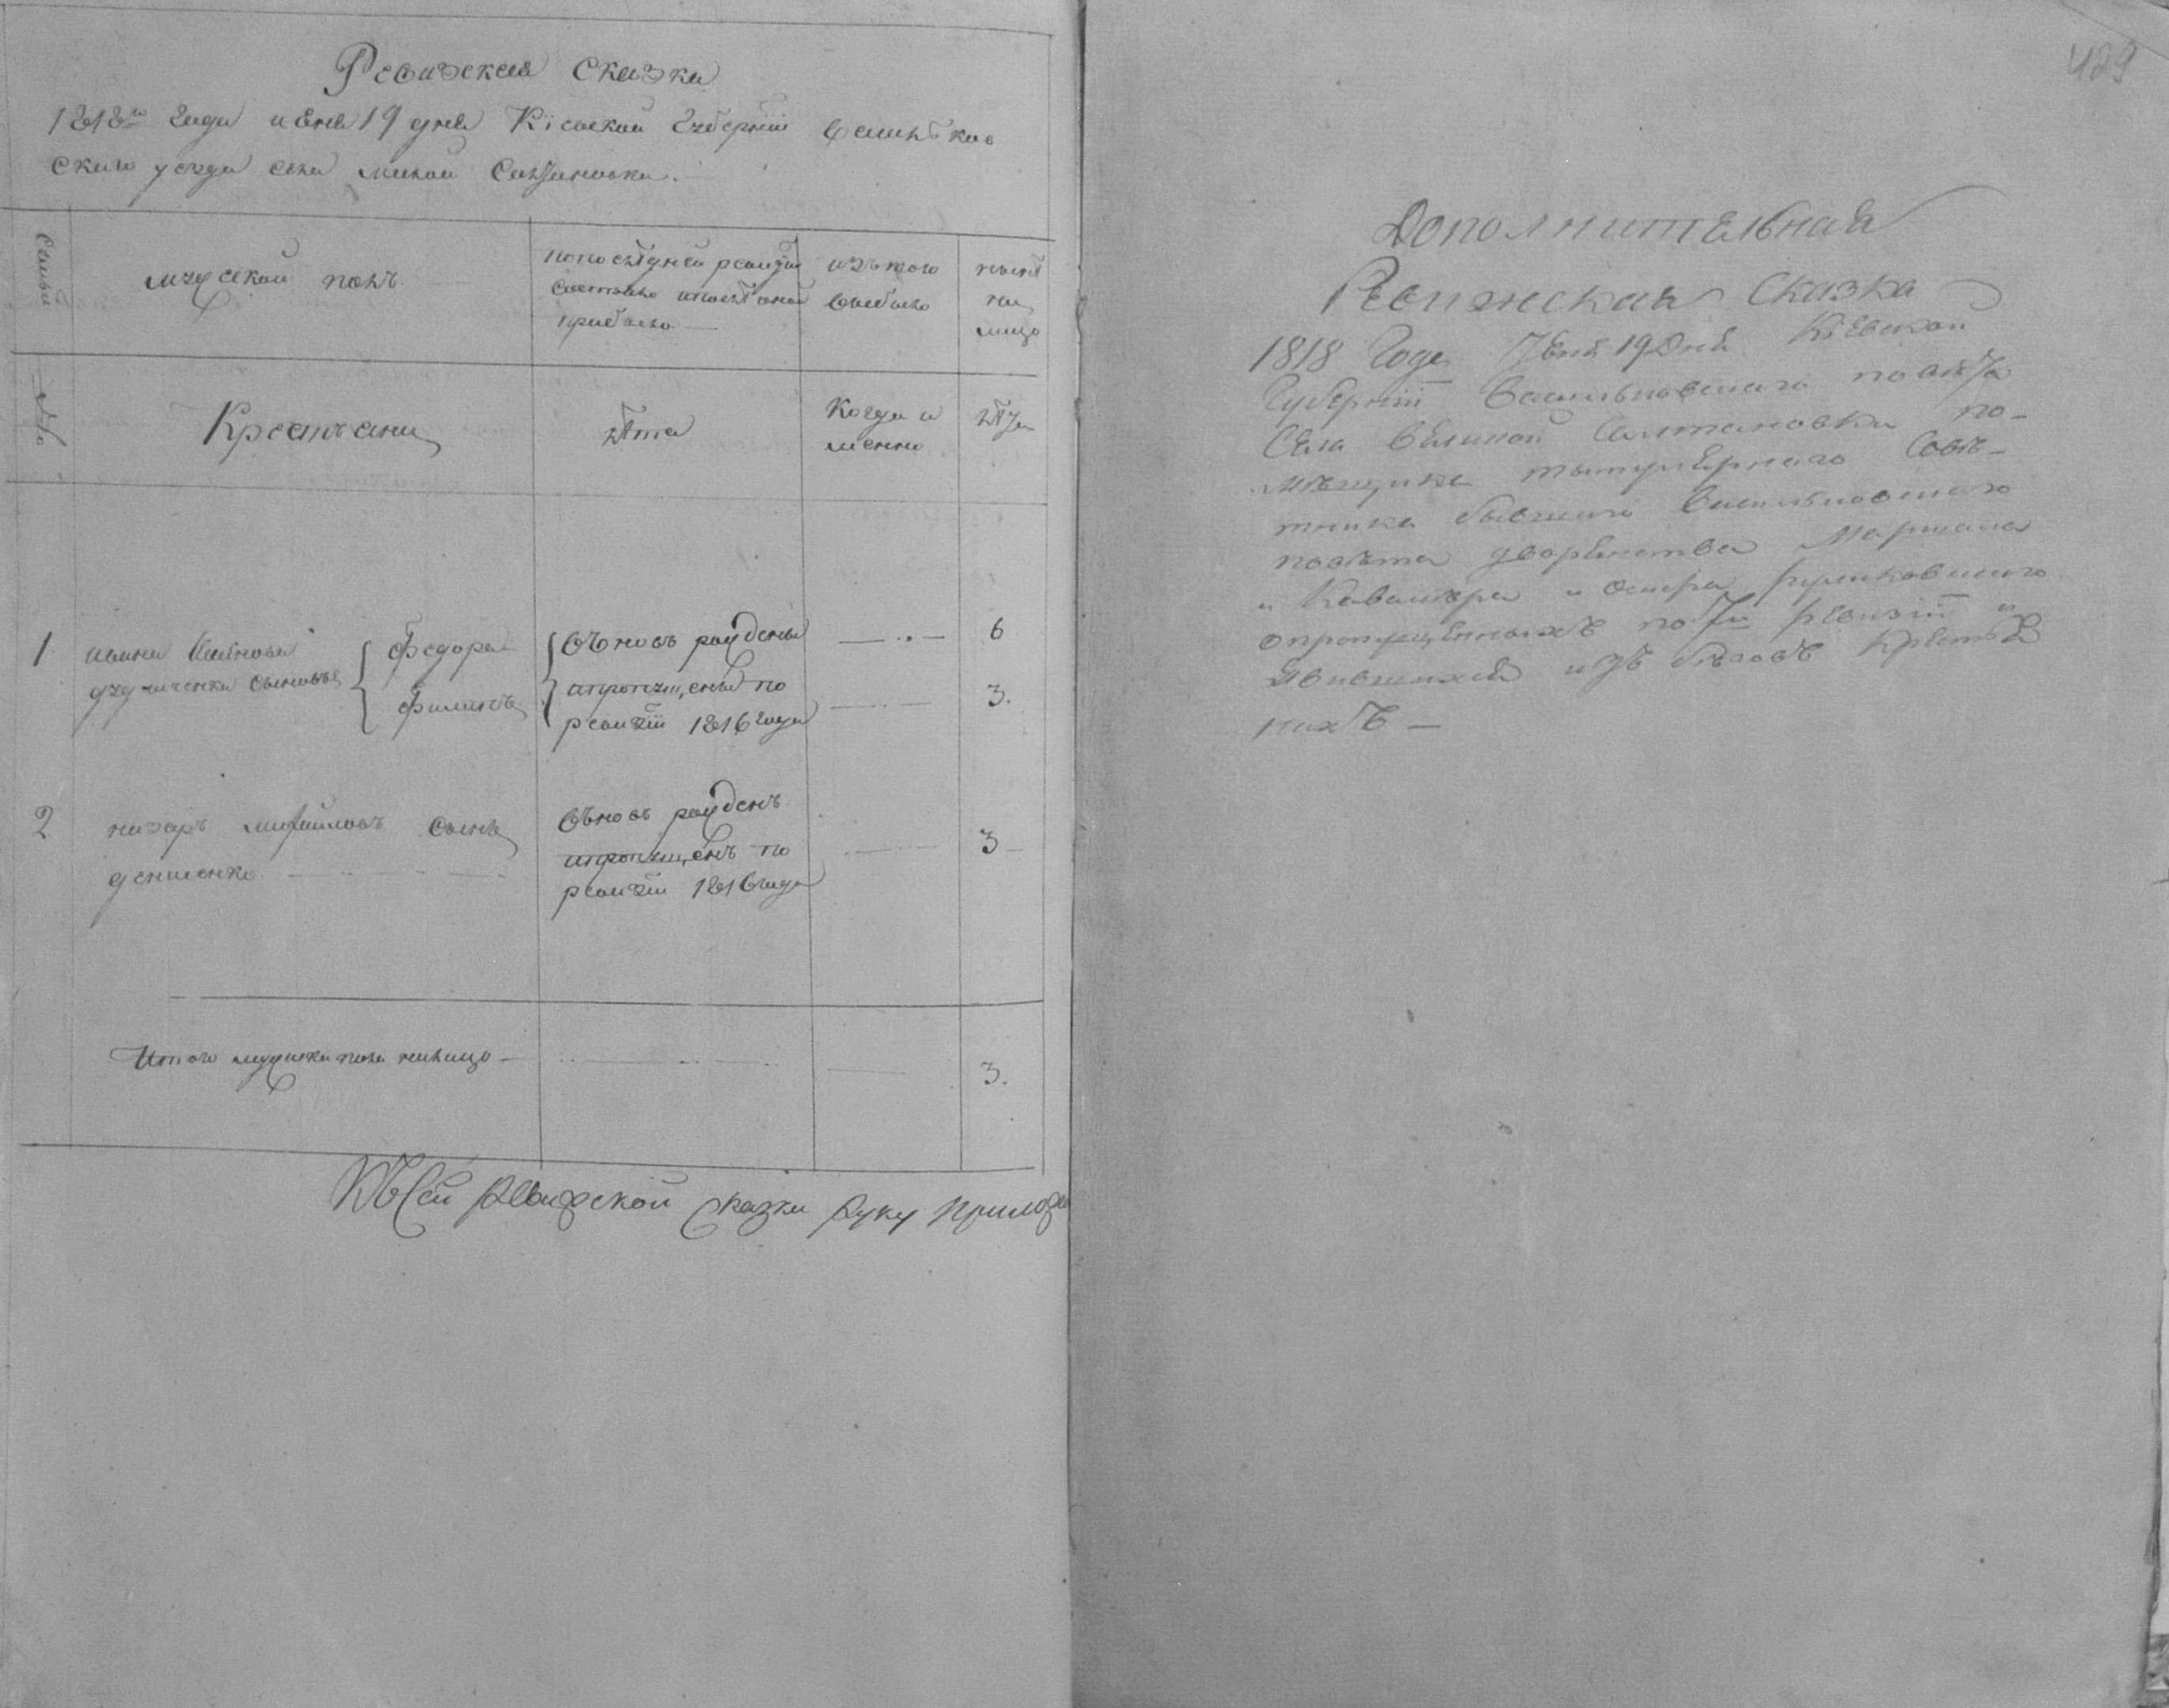 Ревизская Сказка
1818го года июня 19 дня Кіевской губерніи васильков
скаго уезда села малой Салтановки.
Семьи
мужеской полъ
по последней ревизіи
состояло и после оной
прибыло
изъ того
выбыло
ныне
на
лицо
№
Крестьяни
лѣта
Когда и
менно
лѣта
1 ивана иванова
сыновья
Федоръ
Филипъ
Вновь рождены
и пропущены по
ревизіи 1816 года
6
3.
2 назаръ михайловъ сынъ
денисенко
Вновь рожденъ
и пропущенъ по
ревизіи 1816 года
3
Итого мужеска пола налицо
3.
Къ сей ревизской сказки руку прилож
429
Дополнительная
Ревижская Сказка
1818 Года Іюня 19 Дня Кіевской
Губерніи Васильковшаго повѣта
Села Великой Салтановки по-
мѣщика тытулярнаго Совѣ-
тника бывшаго Васильковшаго
повѣта дворянства Маршала
и Кавалера
о пропущенныхъ по 7й ревизіи и
Явившихся изъ бѣговъ Крестья
нахъ